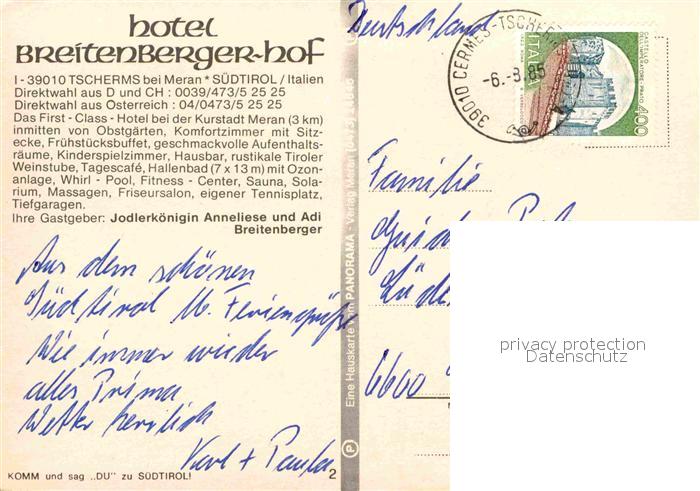 hotel
BreitenBerger-hof
I - 39010 TSCHERMS bei Meran * SÜDTIROL / Italien
Direktwahl aus D und CH : 0039/473/5 25 25
Direktwahl aus Österreich : 04/0473/5 25 25
Das First - Class - Hotel bei der Kurstadt Meran (3 km)
inmitten von Obstgärten, Komfortzimmer mit Sitz-
ecke, Frühstücksbuffet, geschmackvolle Aufenthalts-
räume, Kinderspielzimmer, Hausbar, rustikale Tiroler
Weinstube, Tagescafé, Hallenbad (7 x 13 m) mit Ozon-
anlage, Whirl - Pool, Fitness - Center, Sauna, Sola-
rium, Massagen, Friseursalon, eigener Tennisplatz,
Tiefgaragen.
Ihre Gastgeber: Jodlerkönigin Anneliese und Adi
Breitenberger
Aus dem schönen
Südtirol lb. Feriengrüße
Wie immer wieder
alles Prima
Wetter herrlich
Karl + Paula
KOMM und sag „DU" zu SÜDTIROL!
2
Eine Hauskarte vom PANORAMA - Verlag Meran
P
Deutschland
39010 CERMES-TSCHERMS
-6.-8.85
ITALIA
400
Familie
6600
privacy protection
Datenschutz